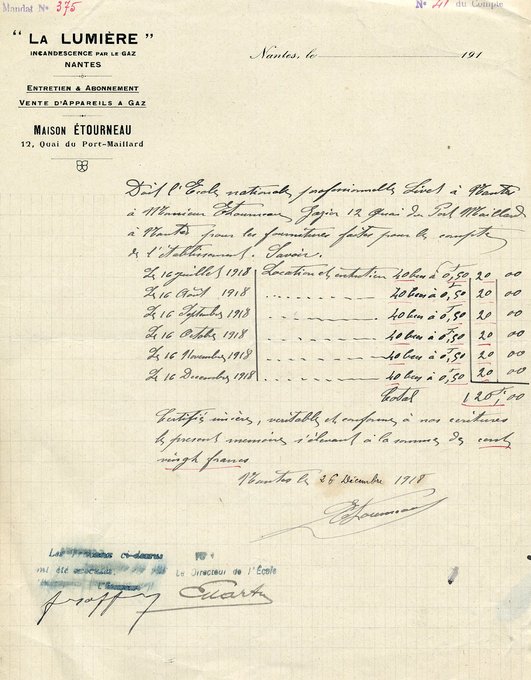 Mandat N° 375
N° 41 du Compte
" LA LUMIÈRE "
INCANDESCENCE PAR LE GAZ
NANTES
ENTRETIEN & ABONNEMENT
VENTE D'APPAREILS A GAZ
MAISON ÉTOURNEAU
12, Quai du Port-Maillard
Nantes, le 191
Doit l'Ecole nationale professionnelle Livet à Nantes
à Monsieur Etourneau Gazier 12 Quai du Port Maillard
à Nantes pour les fournitures faites pour le compte
de l'Etablissement. Savoir.
Le 16 Juillet 1918 Location et entretien 40 becs à 0f,50 20 00
Le 16 Août 1918 40 becs à 0f,50 20 00
Le 16 Septembre 1918 40 becs à 0f,50 20 00
Le 16 Octobre 1918 40 becs à 0f,50 20 00
Le 16 Novembre 1918 40 becs à 0f,50 20 00
Le 16 Decembre 1918 40 becs à 0f,50 20 00
Total 120f,00
Certifié sincère, veritable et conforme à nos ecritures
le present memoire s'elevant à la somme de cent
vingt francs
Nantes le 26 Décembre 1918
Etourneau
Les ci-dessus
ont été
Le Directeur de l'École
l'Économe